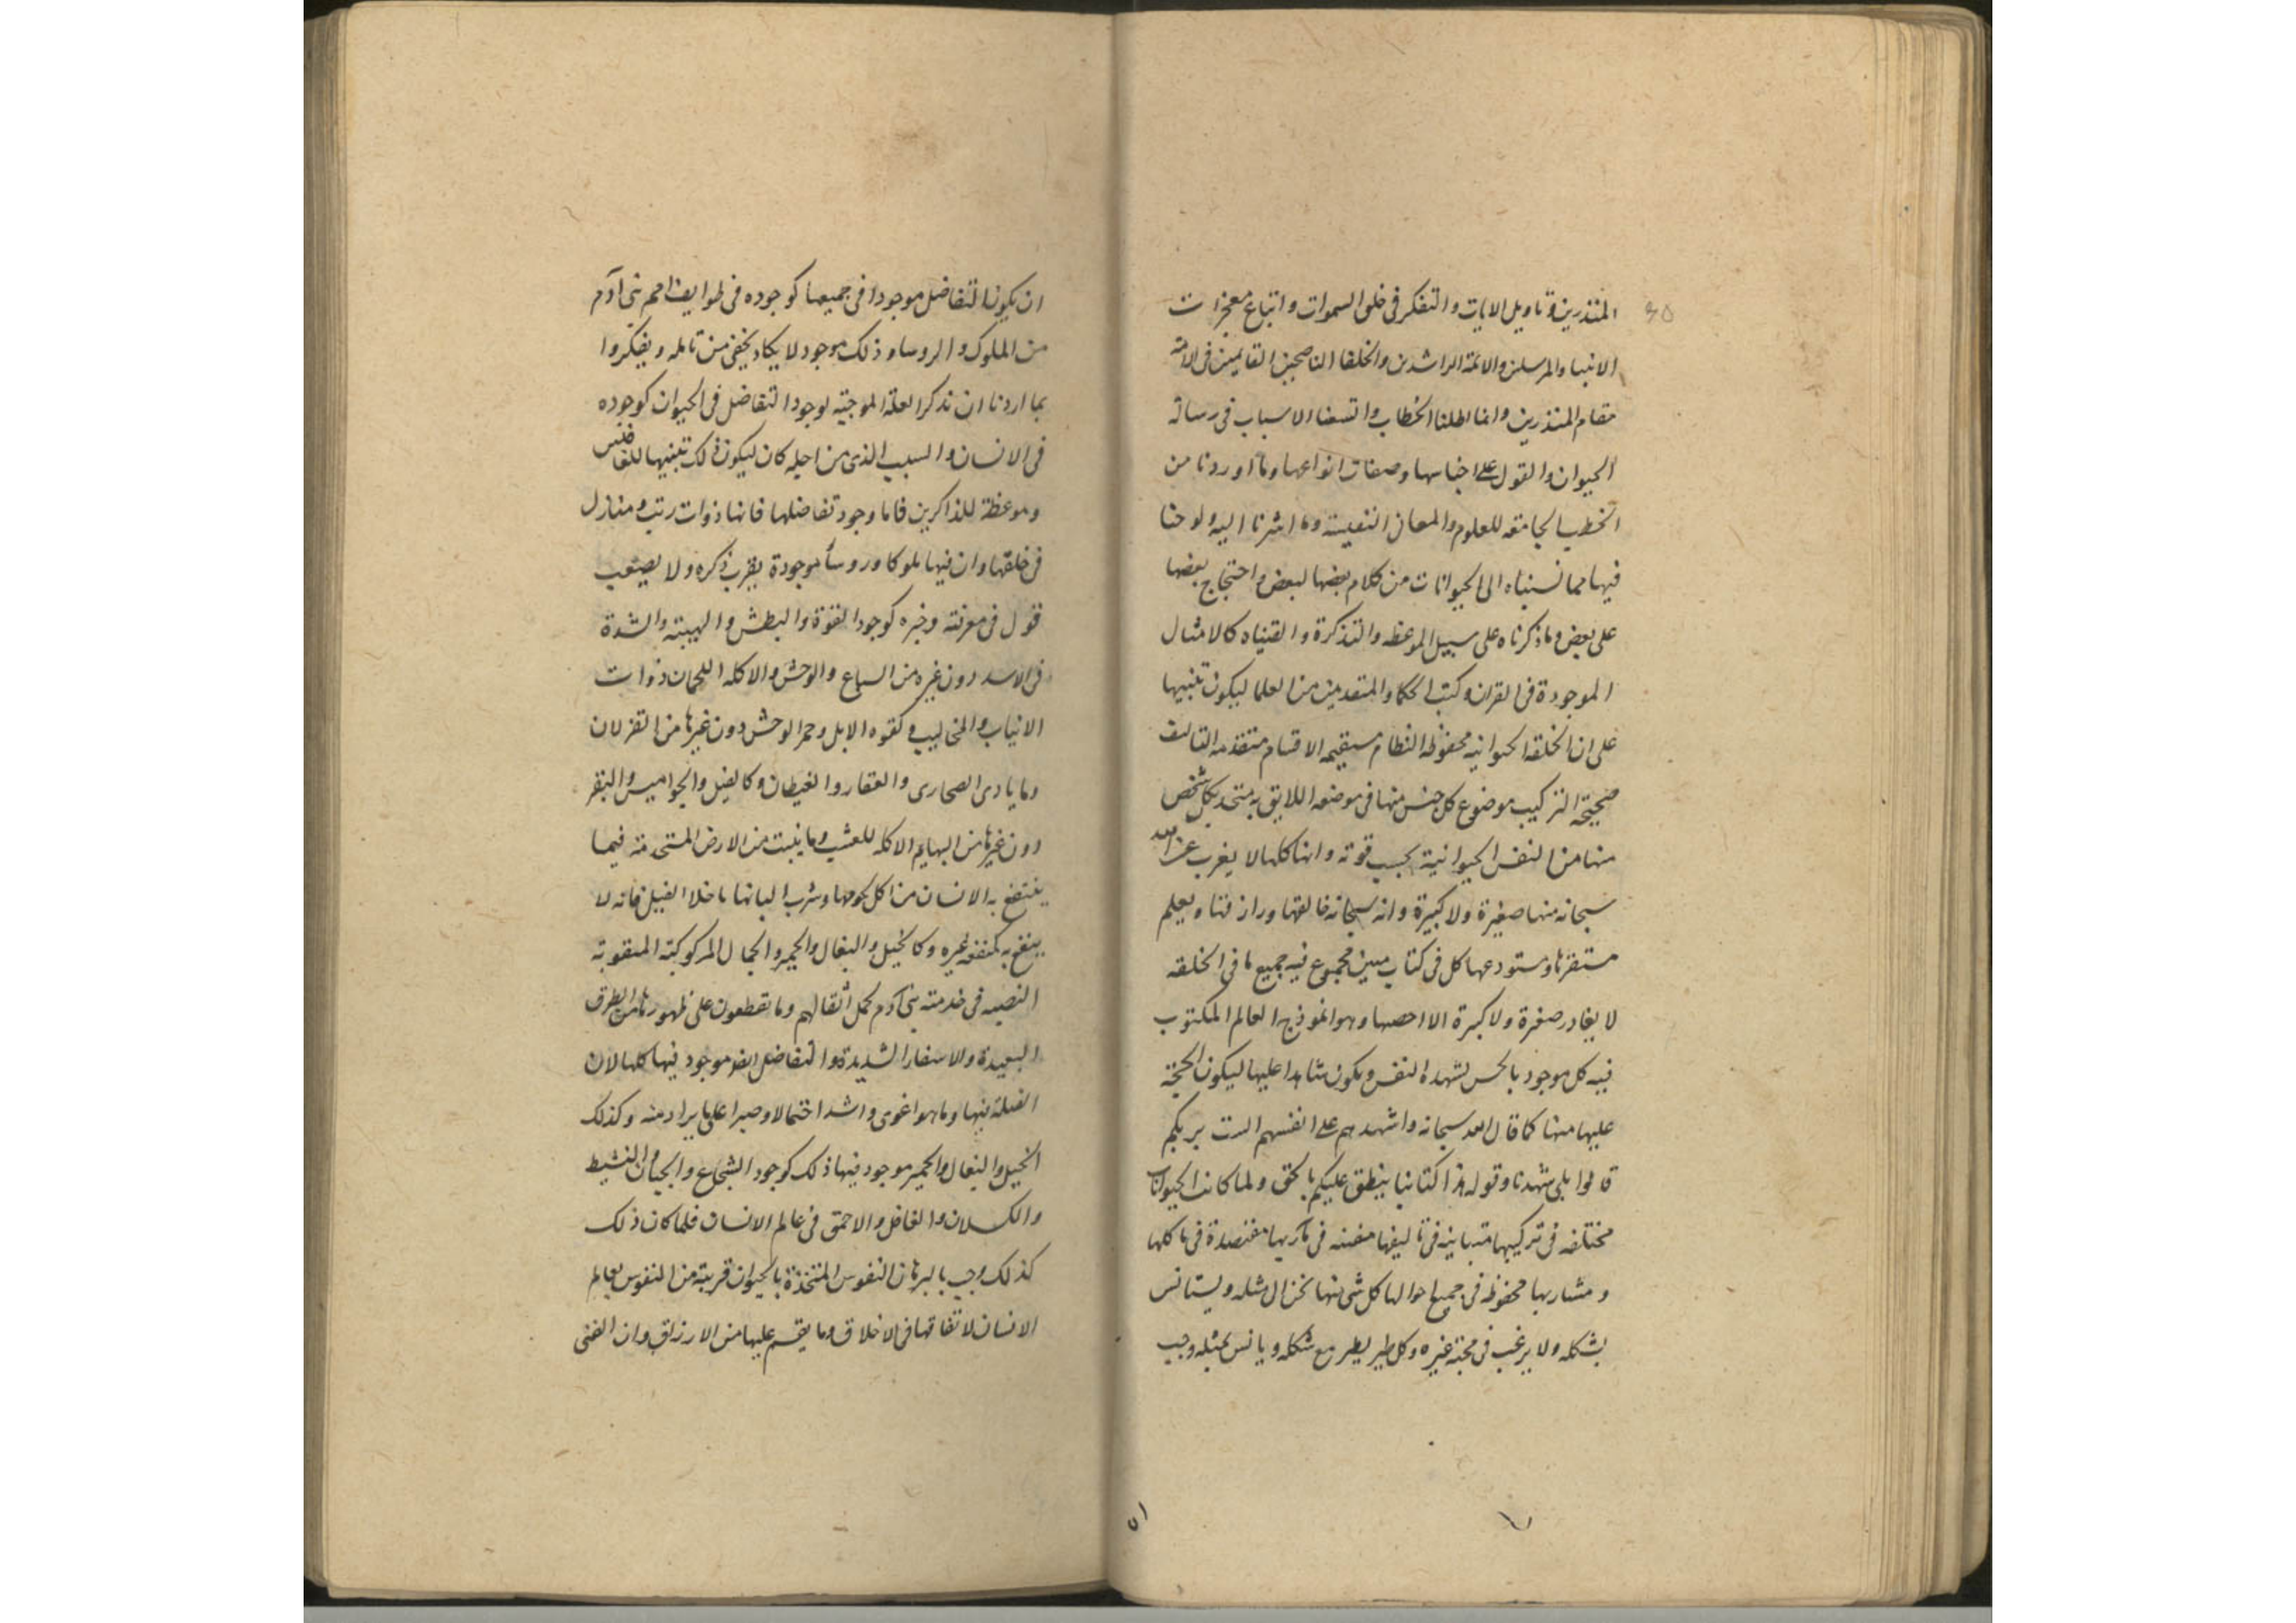 المنذرين وتاويل الايات والتفكر فى خلق السموات واتباع معجزات
الانبياء والمرسلين والائمة الراشدين والخلفا الناصحين القايمين فى الامة
مقام المنذرين وانما اطلنا الخطاب واتسعنا الاسباب فى رسالة
الحيوان والقول على اجناسها وصفات انواعها وما اوردنا من
الخطب الجامعه للعلوم والمعانى النفيسة وما اشرنا اليه ولوحنا
فيها مما نسبناه الى الحيوانات من كلام بعضها لبعض واحتجاج بعضها
على بعض وما ذكرناه على سبيل الموعظه والتذكرة والقيناه كالامثال
الموجودة فى القران وكتب الحكما والمتقدمين من العلما ليكون تنبيها
على ان الخلقه الحيوانيه محفوظه النظام مستقيمه الاقسام متقدمه التاليف
صحيحة التركيب موضوع كل جنس منها فى موضعه اللايق به متحد بكل شخص
منها من النفس الحيوانية بحسب قوته وانها كلها لا يغرب عن الله
سبحانه منها صغيرة ولا كبيرة وانه سبحانه خالقها ورازقها ويعلم
مستقرها ومستودعها كل فى كتاب مبين مجموع فيه جميع ما فى الخلقه
لا يغادر صغيرة ولا كبيرة الا احصها وهو انموذج العالم المكتوب
فيه كل موجود بالحس لتشهده النفس ويكون شاهدا عليها ليكون الحجة
عليها منها كما قال الله سبحانه واشهدهم على انفسهم الست بربكم
قالوا بلى شهدنا وقوله هذا كتابنا ينطق عليكم بالحق ولما كانت الحيوانات
مختلفه فى تركيبها متباينه فى تاليفها مفننه فى مآربها مقتصدة فى ماكلها
ومشاربها محفوظه فى جميع احوالها كل شى منها الى مثله ويستانس
بشكله ولا يرغب فى محبة غيره وكل طير يطير مع شكله ويانس بمثله وجب
٥١
ان يكون التفاضل موجودا فى جميعها كوجوده فى طوايف امم بنى آدم
من الملوك والروسا وذلك موجود لا يكاد يخفى من تامله ويفكروا
بما اردنا ان نذكر العلة الموجبة لوجود التفاضل فى الحيوان كوجوده
فى الانسان والسبب الذى من اجله كان ليكون ذلك تنبيها للغافلين
وموعظة للذاكرين فاما وجود تفاضلها فانها ذوات رتب ومنازل
فى خلقها وان فيها ملوكا وروسأ موجودة يقرب ذكره ولا يصعب
قول فى معرفته وخبره كوجود القوة والبطش والهيبة والشدة
فى الاسد دون غيره من السباع والوحش والاكله اللحمان ذوات
الانياب والمخاليب وكقوه الابل وحمر الوحش دون غيرها من الغزلان
وما ياوى الصحارى والقفار والغيطان وكالفيل والجواميس والبقر
دون غيرها من البهايم الاكله للعشب وما ينبت من الارض المستخدمة فيما
ينتفع به الانسان من اكل لحومها وشرب البانها ما خلا الفيل فانه لا
ينتفع به كمنفعه غيره وكالخيل والبغال والحمير والجمال المركوبة المنقوبة
فى خدمته بنى آدم لحمل اثقالهم وما يقطعون على ظهورها من الطرق
البعيدة والاسفار الشديدة والتفاضل ايضا موجود فيها كلها لان
الفيلة منها وما هو اقوى واشد احتمالا وصبرا على ما يراد منه وكذلك
الخيل والبغال والحمير موجود فيها ذلك كوجود الشجاع والجبان والنشيط
والكسلان والغافل والاحمق فى عالم الانسان فلما كان ذلك
كذلك وجب بالبرهان النفوس المتخذة بالحيوان قريبة من النفوس بعالم
الانسان لاتفاقها فى الاخلاق وما يقسم عليها من الارزاق وان الغنى